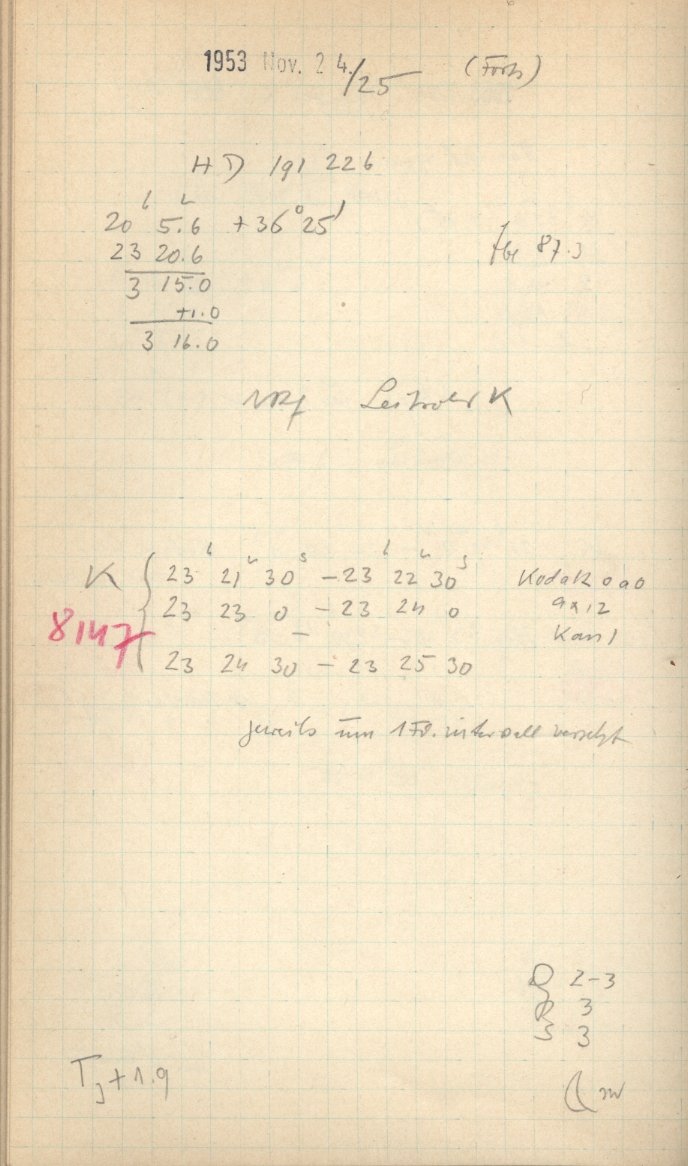 1953 Nov. 24./25 (Forts)
HD 191 226
20 h 5.6 +36° 25'
23 20.6 87.3
3 15.0
+1.0
3 16.0
K
K { 23 h 21 30 s – 23 h 22 30 s Kodak 0a0
8147 23 23 0 – 23 24 0 9x12
Kan 1
23 24 30 – 23 25 30
jeweils um 1 versetzt
2-3
3
S 3
T J +1.9